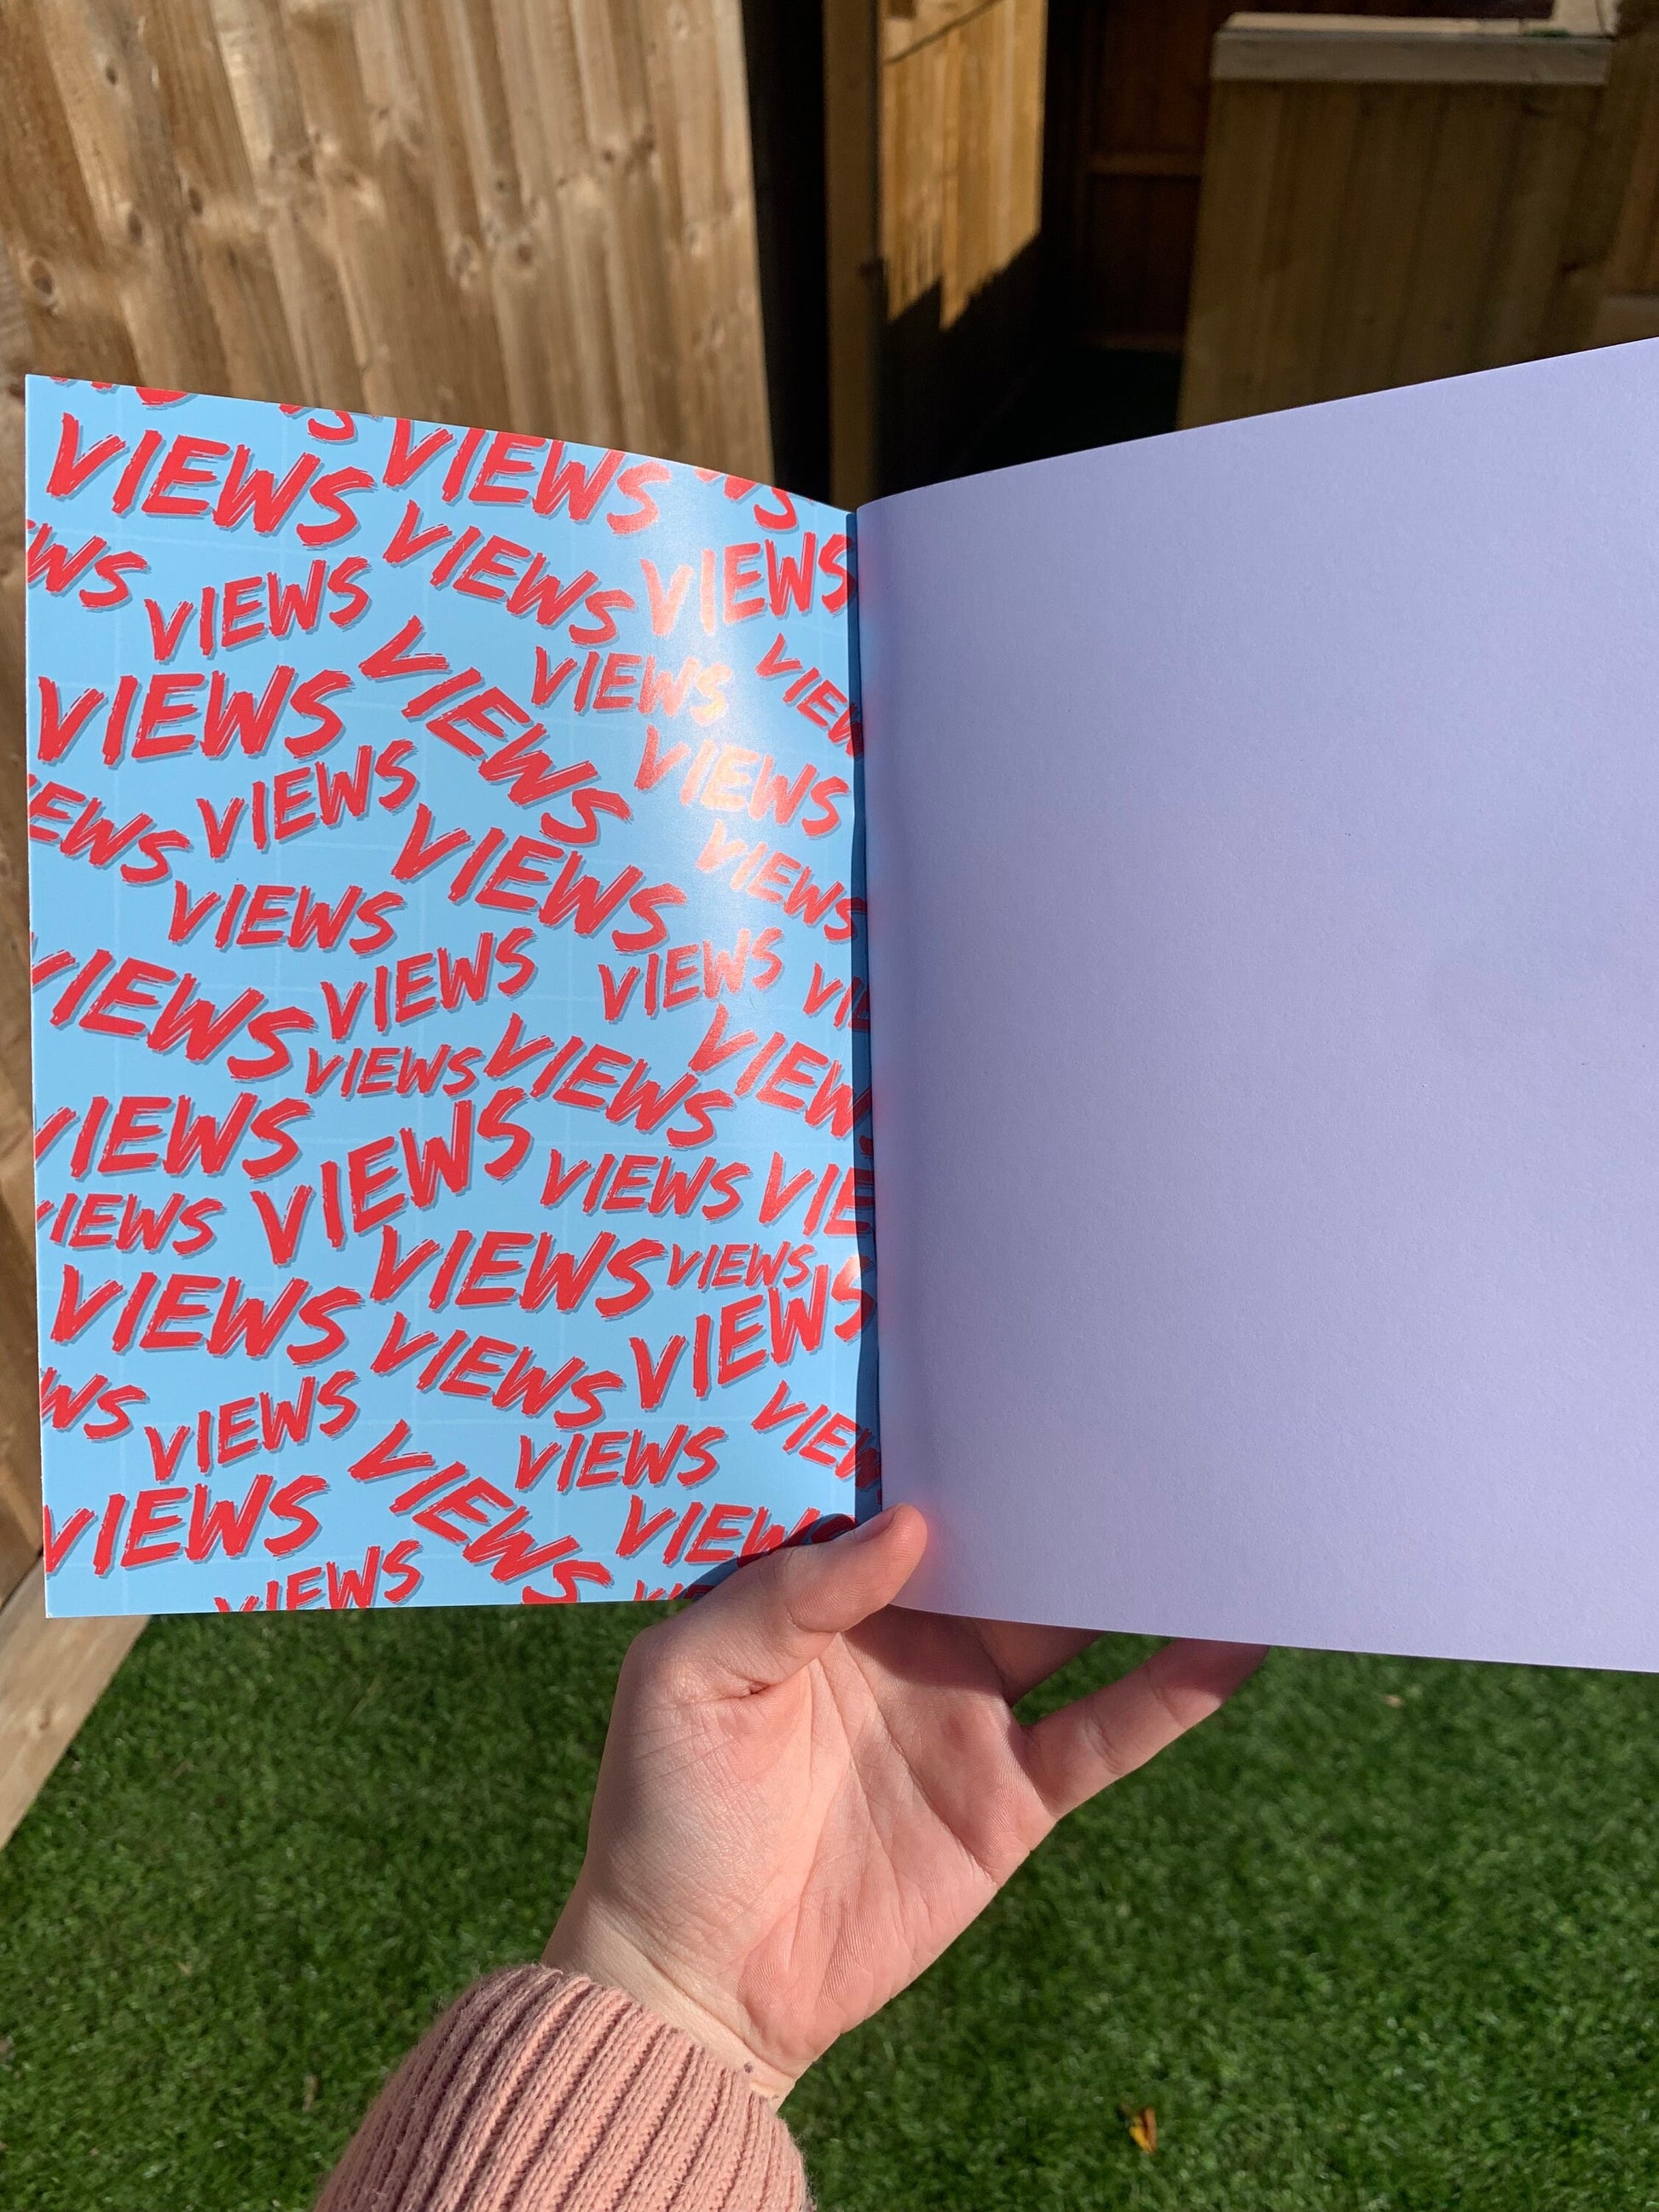 VIEWS
VIEWS
WS
VIEWS
VIEWS
VIEWS
VIEWS
VIEWS
VIEWS
VIEW
VIEWS
EWS
VIEWS
VIEWS
VIEWS
VIEWS
VIEWS
VIEWS
VIEWS
VI
VIEWS
VIEWS
VIEWS
VIEW
VIEWS
VIEWS
VIEWS
VIE
IEWS
VIEWS
VIEWS
VIEWS
VIEWS
VIEWS
WS
VIEWS
VIEWS
VIEW
VIEWS
VIEWS
VIEW
VIEWS